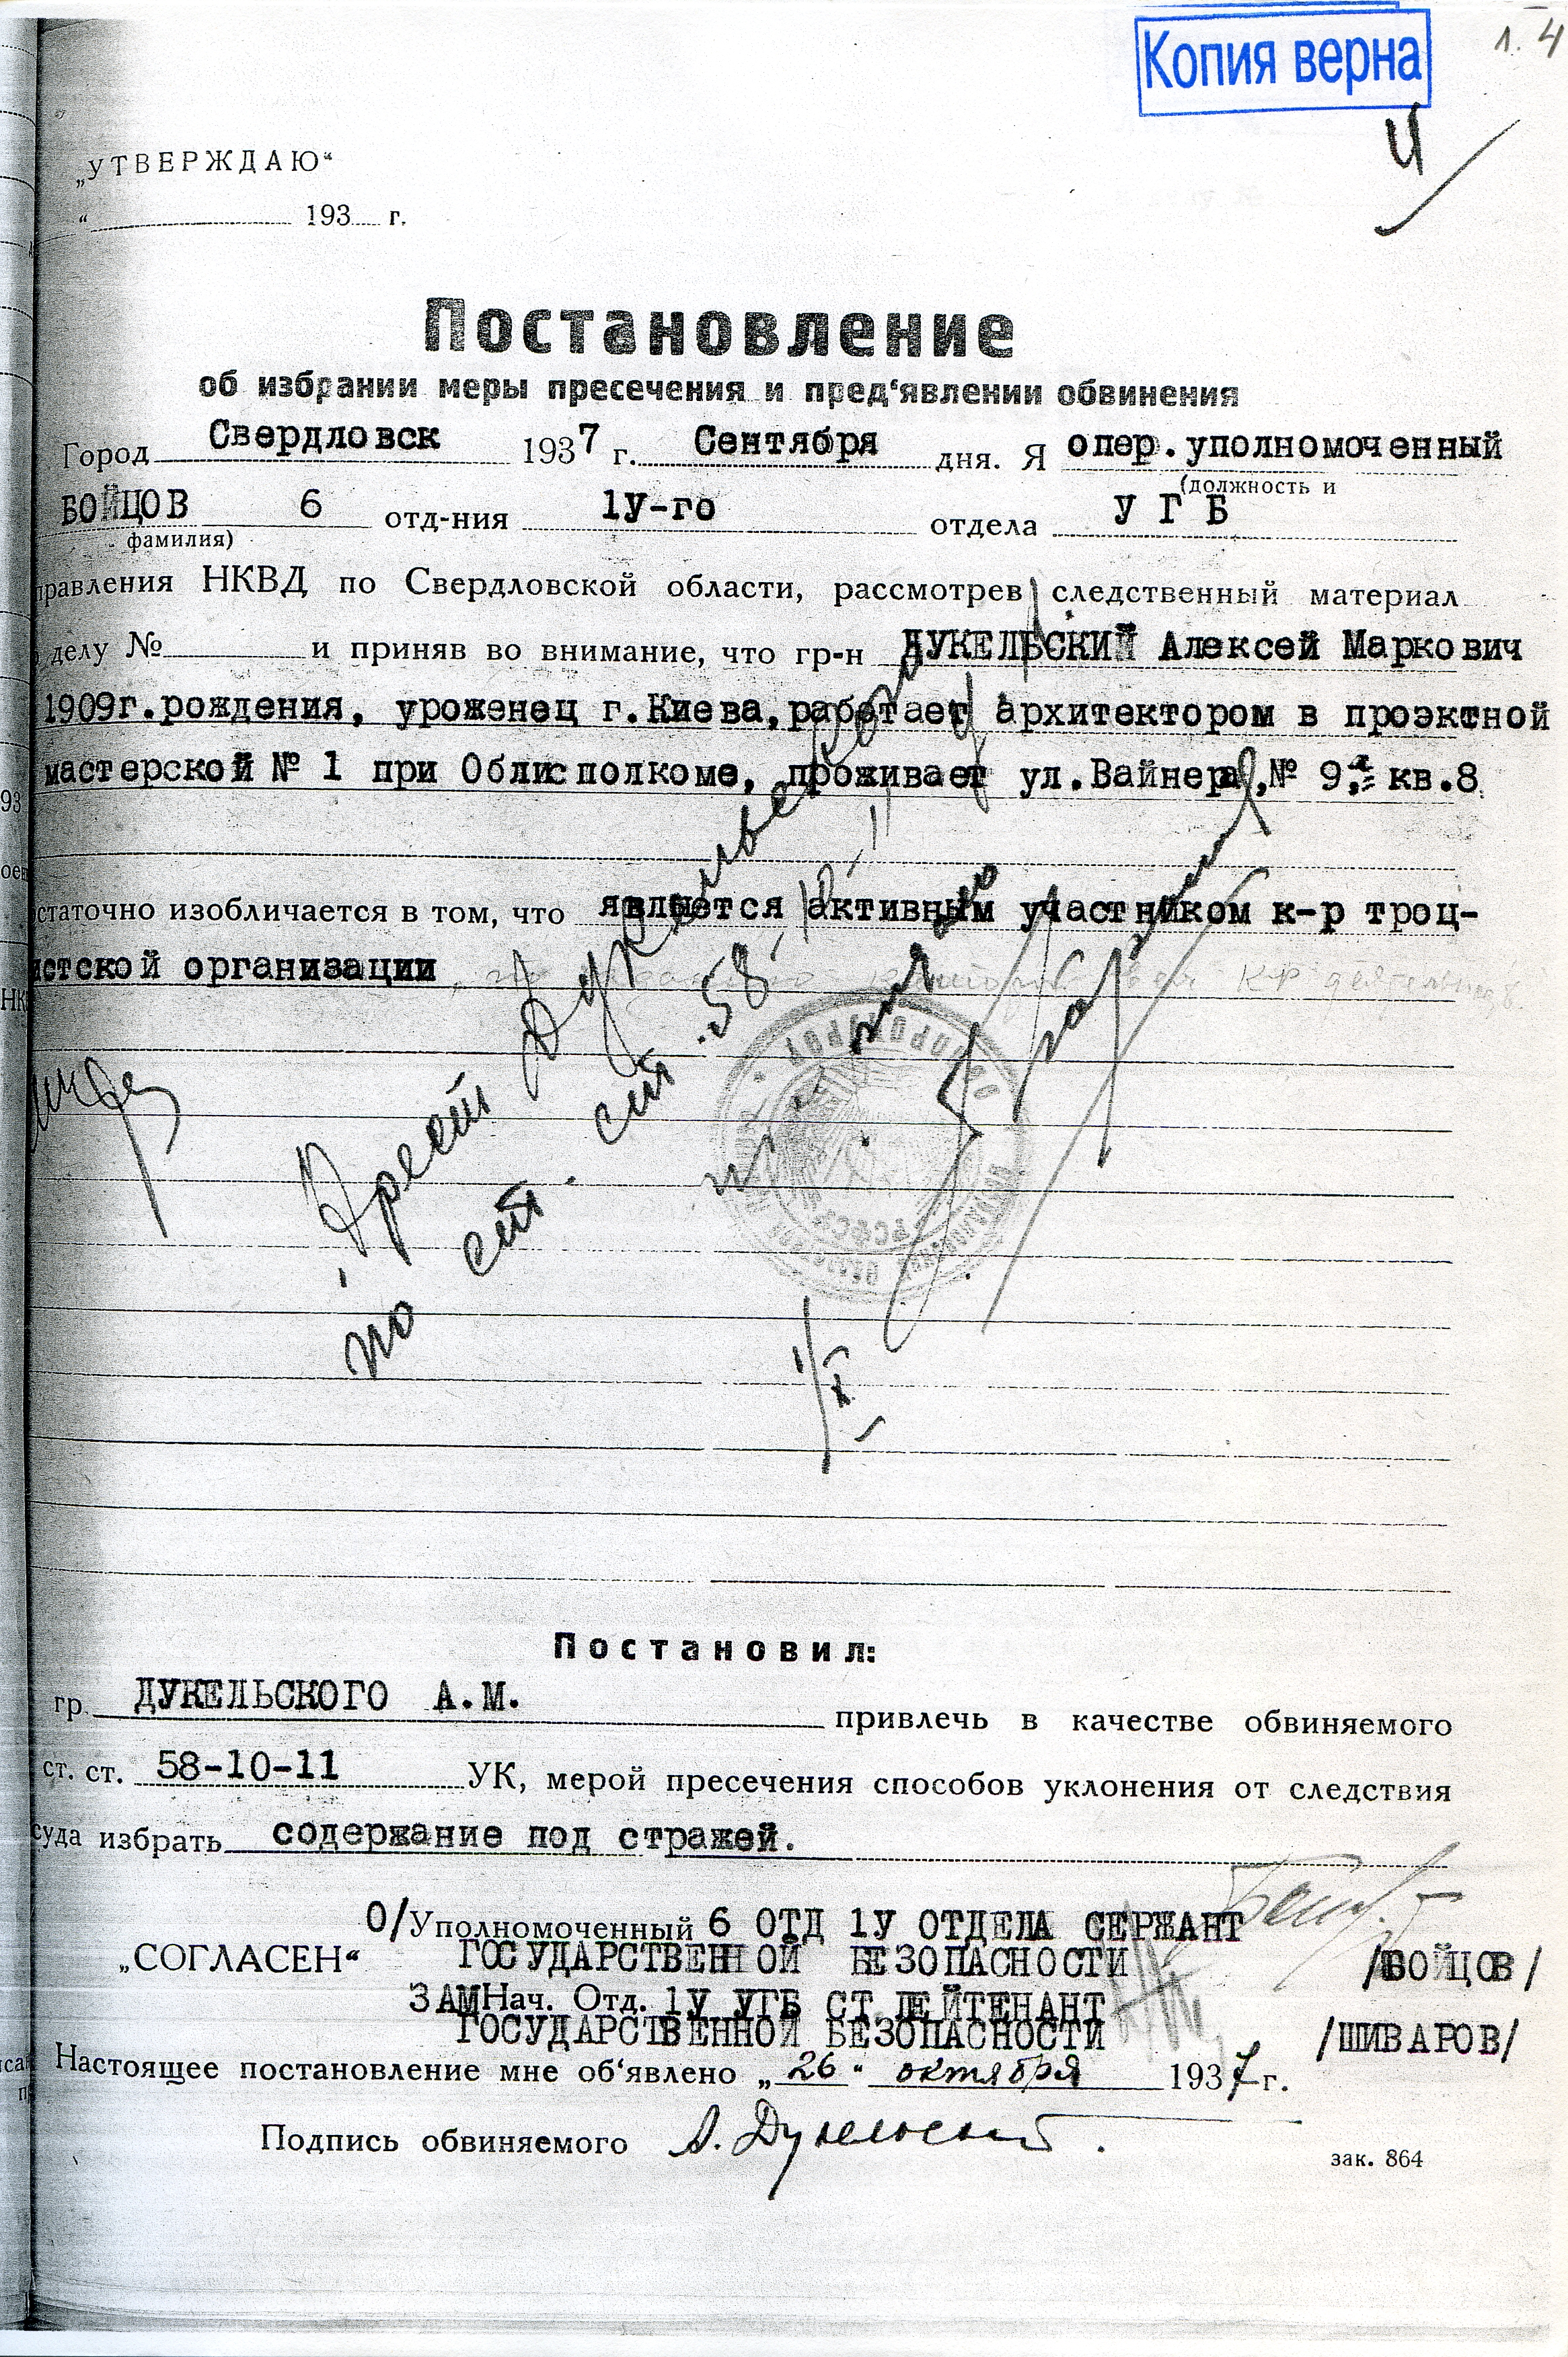 Копия верна
л. 4
4
„УТВЕРЖДАЮ“
“ 193 г.
Постановление
об избрании меры пресечения и пред‘явлении обвинения
Город Свердловск 1937 г. Сентября дня. Я опер.уполномоченный
(должность и
БОЙЦОВ 6 отд-ния 1У-го отдела У Г Б
фамилия)
правления НКВД по Свердловской области, рассмотрев следственный материал
делу № и приняв во внимание, что гр-н ДУКЕЛЬСКИЙ Алексей Маркович
1909г.рождения, уроженец г.Киева,работает архитектором в проэктной
мастерской № 1 при Облисполкоме, проживает ул.Вайнера,№ 9, кв.8
статочно изобличается в том, что является активным участником к-р троц-
истской организации
Арест Дукельского
по ст. ст. 58
РСФСР
Постановил:
гр. ДУКЕЛЬСКОГО А.М. привлечь в качестве обвиняемого
ст. ст. 58-10-11 УК, мерой пресечения способов уклонения от следствия
суда избрать содержание под стражей.
О/Уполномоченный 6 ОТД 1У ОТДЕЛА СЕРЖАНТ
„СОГЛАСЕН“ ГОСУДАРСТВЕННОЙ БЕЗОПАСНОСТИ /БОЙЦОВ/
ЗАМНач. Отд. 1У УГБ СТ ЛЕЙТЕНАНТ
ГОСУДАРСТВЕННОЙ БЕЗОПАСНОСТИ /ШИВАРОВ/
Настоящее постановление мне об‘явлено „26“ октября 1937 г.
Подпись обвиняемого А. Дукельский.
зак. 864